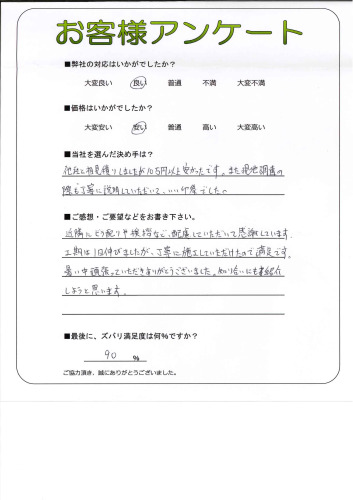 お客様アンケート
■弊社の対応はいかがでしたか?
大変良い 良い 普通 不満 大変不満
■価格はいかがでしたか?
大変安い 安い 普通 高い 大変高い
■当社を選んだ決め手は?
他社と相見積りしましたが10万円以上安かったです。また現地調査の
際も丁寧に説明していただいて、いい印象でした。
■ご感想・ご要望などをお書き下さい。
近隣にビラ配りや挨拶など、配慮していただいて感謝しています。
工期は1日伸びましたが、丁寧に施工していただけたので満足です。
暑い中頑張っていただきありがとうございました。知り合いにも紹介
しようと思います。
■最後に、ズバリ満足度は何%ですか?
90 %
ご協力頂き、誠にありがとうございました。